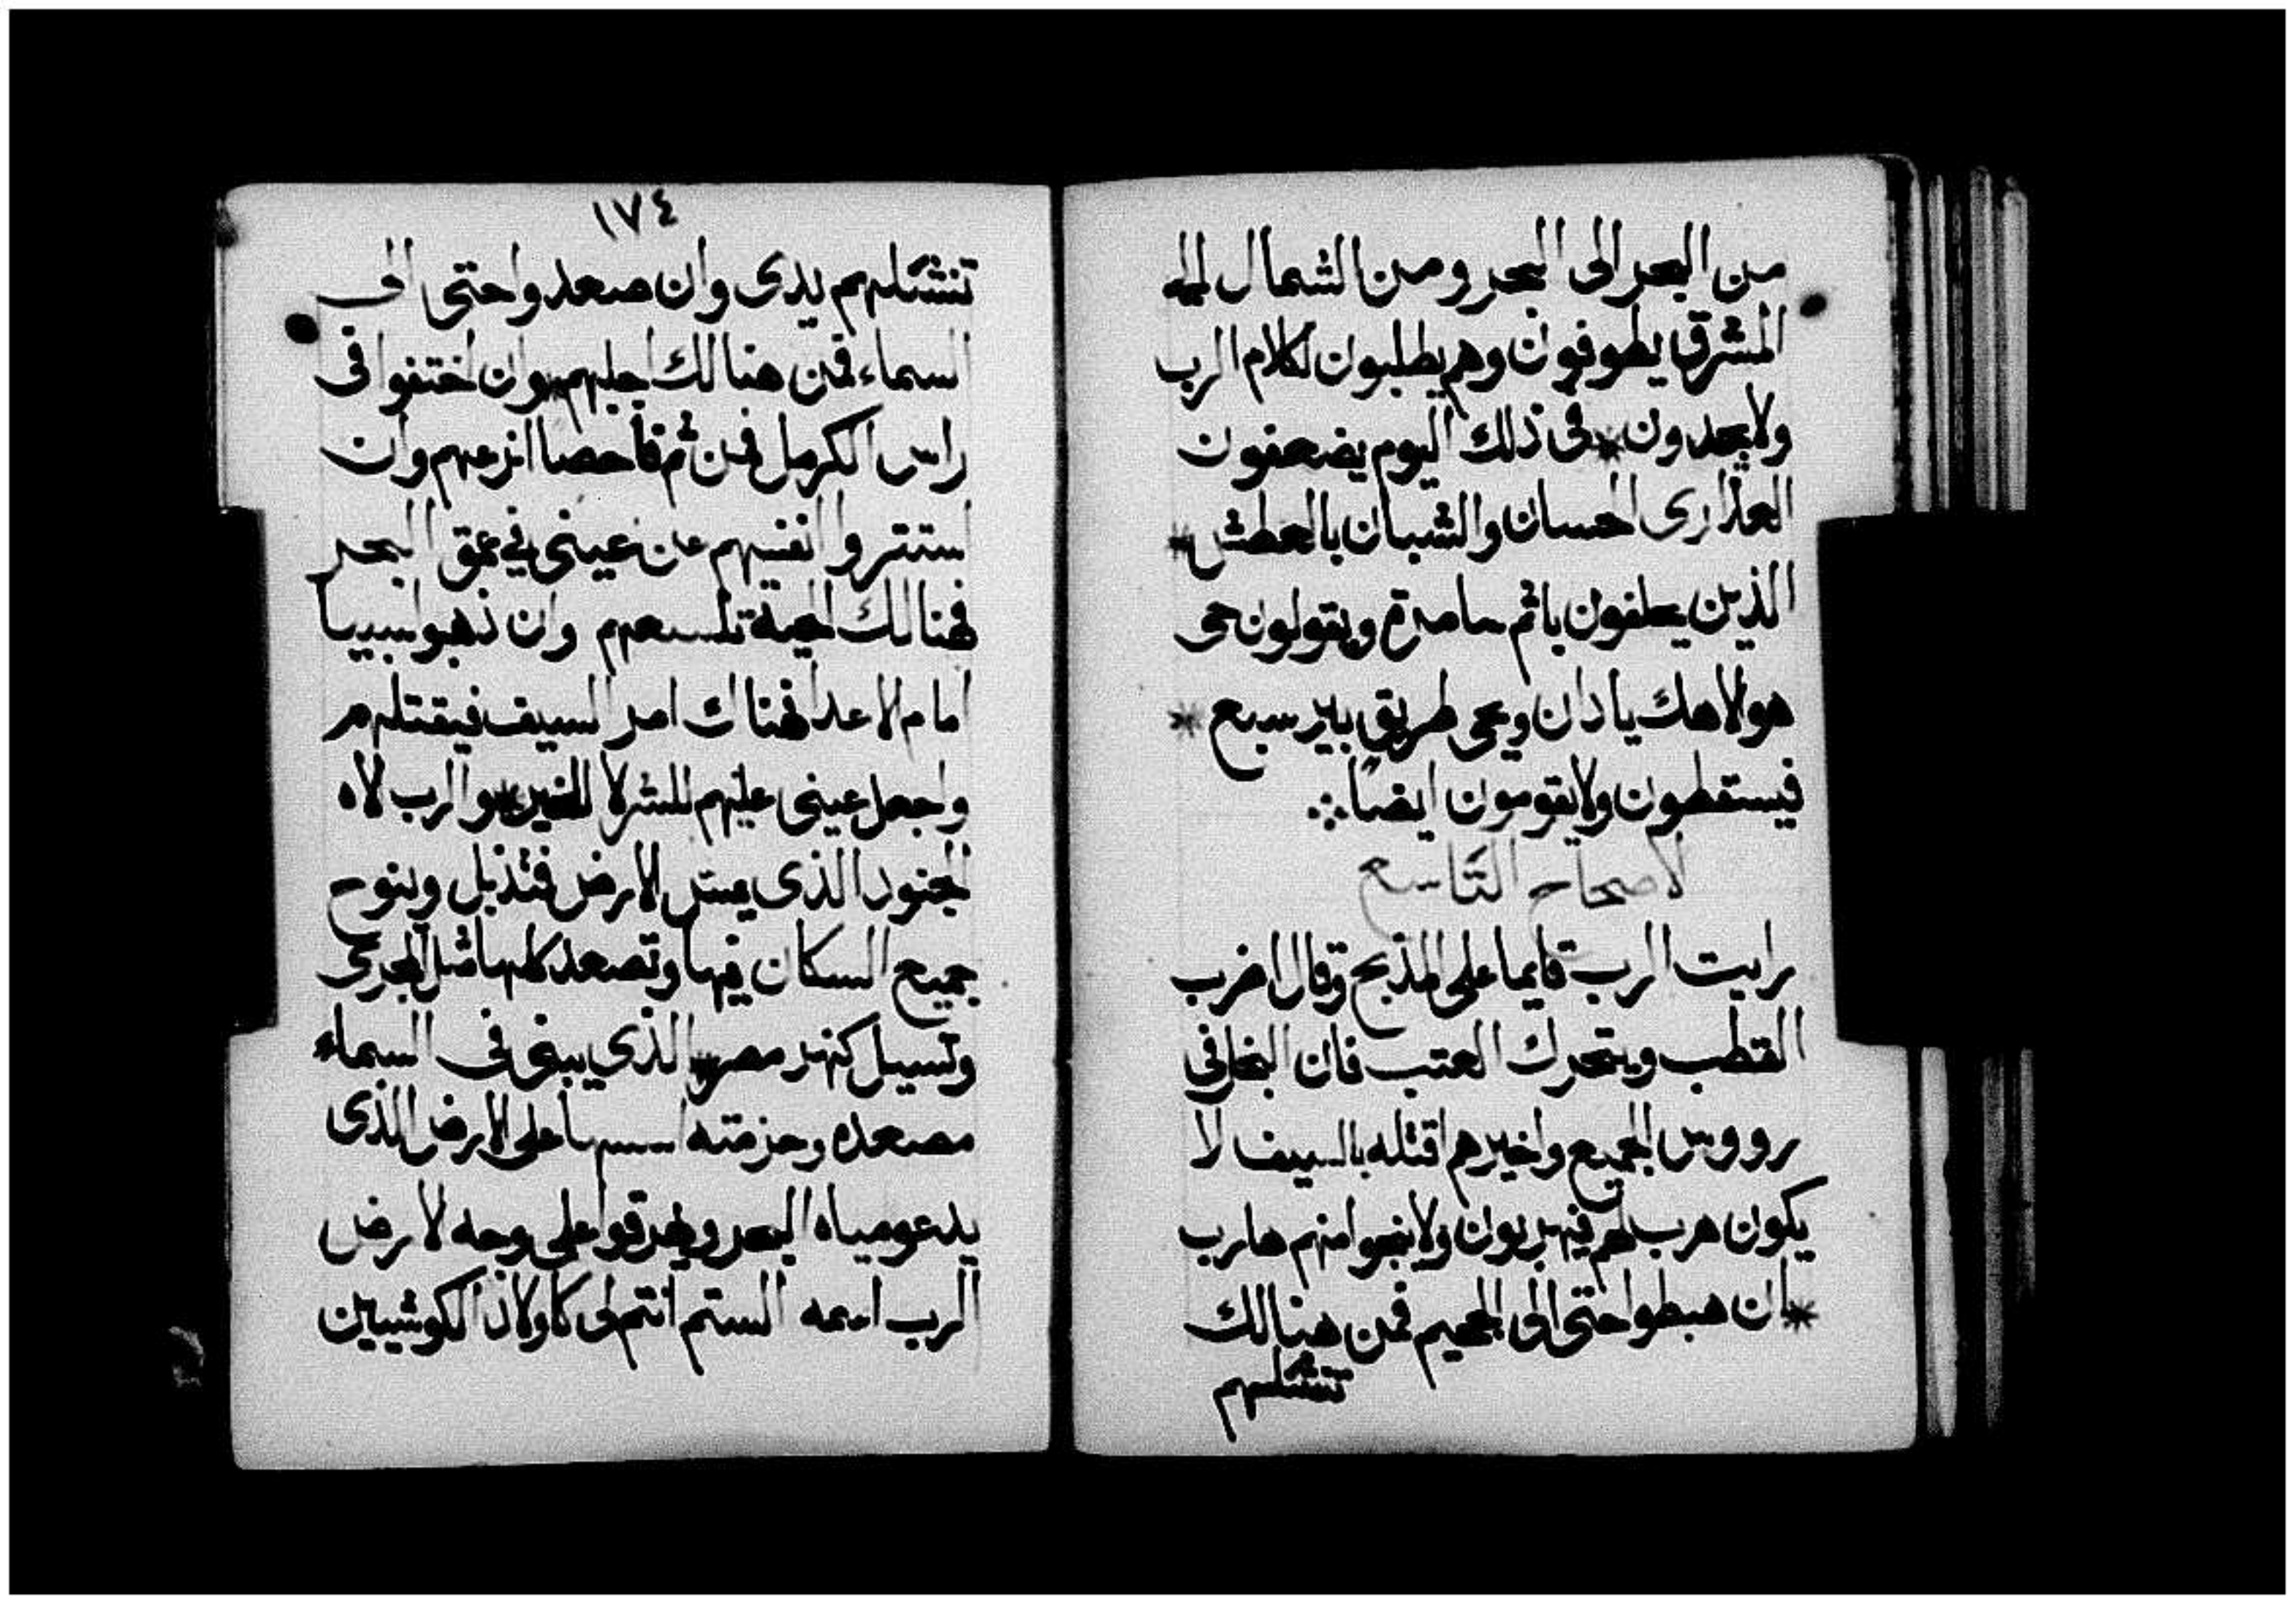 من البحر الى البحر ومن الشمال الى
المشرق يطوفون وهم يطلبون لكلام الرب
ولا يجدون * فى ذلك اليوم يضعفون
العذارى الحسان والشبان بالعطش *
الذين يحلفون باثم سامرة ويقولون حى
هو الاهك يا دان وحى طريق بير سبع *
فيسقطون ولا يقومون ايضًا
الاصحاح التاسع
رايت الرب قايما على المذبح وقال اضرب
القطب ويتحرك العتب فان البخل فى
رووس الجميع واخيرهم اقتله بالسيف لا
يكون هرب لهم فيهربون ولا ينجوا منهم هارب
* ان هبطوا حتى الى الجحيم فمن هنالك
تنشلهم
١٧٤
تنشلهم يدى وان صعدوا حتى الى
السماء فمن هنالك اجلبهم * وان اختفوا فى
راس الكرمل فمن ثم فاحصا انزعهم وان
استتروا انفسهم عن عينى في عمق البحر
فهنالك الحية تلسعهم وان ذهبوا سبيا
امام الاعدا فهناك امر السيف فيقتلهم
واجعل عينى عليهم للشر لا للخير * والرب الاه
الجنود الذى يمس الارض فتذبل وينوح
جميع السكان فيها وتصعد كلها مثل المجرى
وتسيل كنهر مصر * الذي يبنى فى السماء
مصعده وحزمته اسسها على الارض الذى
يدعو مياه البحر ويهرقوا على وجه الارض
الرب اسمه الستم انتم لى كاولاد الكوشيين